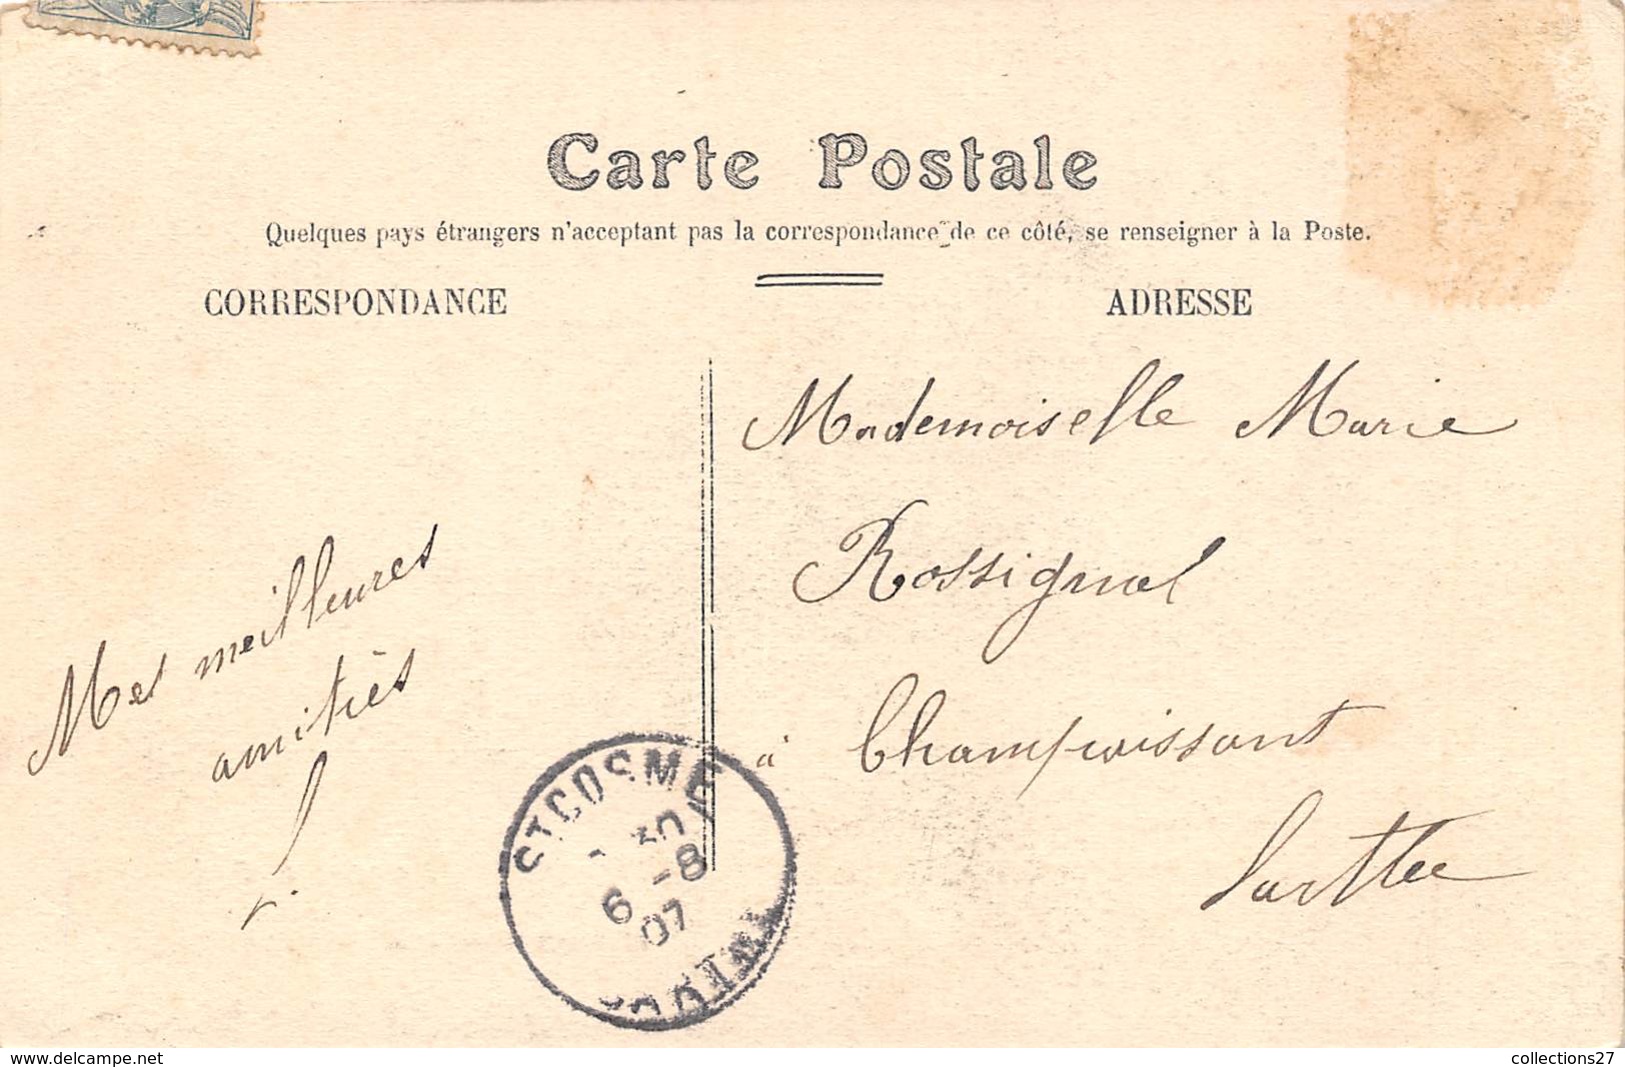 Carte Postale
Quelques pays étrangers n'acceptant pas la correspondance de ce côté, se renseigner à la Poste.
CORRESPONDANCE
ADRESSE
Mademoiselle Marie
Rossignol
à Champaissant
Sarthe
Mes meilleures
amitiés
ST COSME
30
6 -8
07
www.delcampe.net
collections27